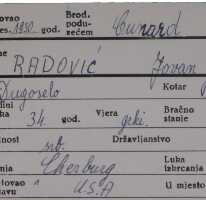 ovao
es. 1930. god.
Brod. podu-
zećem Cunard
me RADOVIĆ Jovan
Dugoselo Kotar
dini
ka 34 god. Vjera grki. Bračno
stanje
nost srb. Državljanstvo
nja Cherburg Luka
izkrcanja
tovao
žavu U.S.A U mjesto